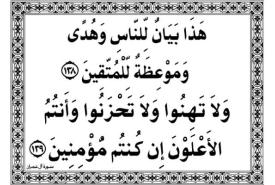 هَذَا بَيَانٌ لِّلنَّاسِ وَهُدًى
وَمَوْعِظَةٌ لِّلْمُتَّقِينَ ﴿١٣٨﴾
وَلَا تَهِنُوا وَلَا تَحْزَنُوا وَأَنتُمُ
الأَعْلَوْنَ إِن كُنتُم مُّؤْمِنِينَ ﴿١٣٩﴾
سورة آل عمران